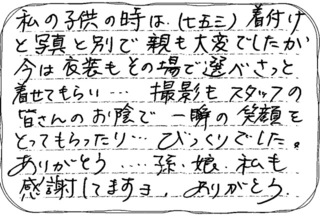 私の子供の時は、(七五三)着付け
と写真と別で親も大変でしたが
今は衣装もその場で選べさっと
着せてもらい… 撮影もスタッフの
皆さんのお陰で一瞬の笑顔を
とってもらったり… びっくりでした。
ありがとう…. 孫、娘、私も
感謝してますヨ、ありがとう。